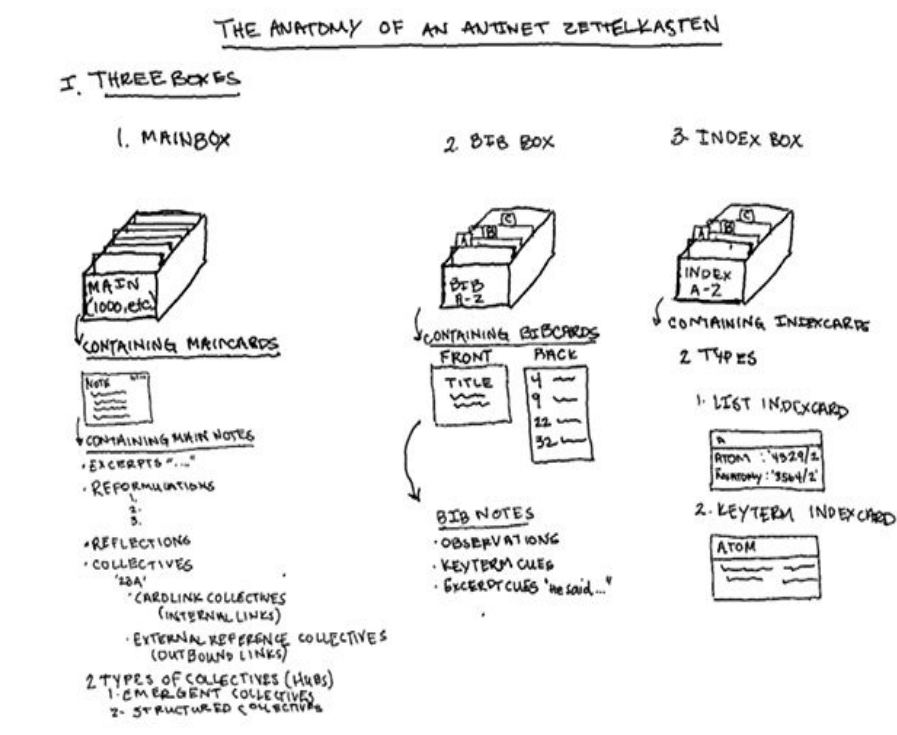 THE ANATOMY OF AN ANTINET ZETTELKASTEN
I. THREE BOXES
1. MAINBOX
MAIN
(1000, etc.)
CONTAINING MAINCARDS
NOTE
CONTAINING MAIN NOTES
• EXCERPTS "..."
• REFORMULATIONS
1.
2.
3.
• REFLECTIONS
• COLLECTIVES
'28A'
• CARDLINK COLLECTIVES
(INTERNAL LINKS)
• EXTERNAL REFERENCE COLLECTIVES
(OUTBOUND LINKS)
2 TYPES OF COLLECTIVES (HUBS)
1. EMERGENT COLLECTIVES
2. STRUCTURED COLLECTIVES
2. BIB BOX
A
B
C
BIB
A-Z
CONTAINING BIBCARDS
FRONT
TITLE
BACK
4
9
22
32
BIB NOTES
• OBSERVATIONS
• KEYTERM CUES
• EXCERPT CUES "He said..."
3. INDEX BOX
A
B
C
INDEX
A-Z
CONTAINING INDEXCARDS
2 TYPES
1. LIST INDEXCARD
A
ATOM : '4329/2'
ANATOMY : '3564/2'
2. KEYTERM INDEXCARD
ATOM